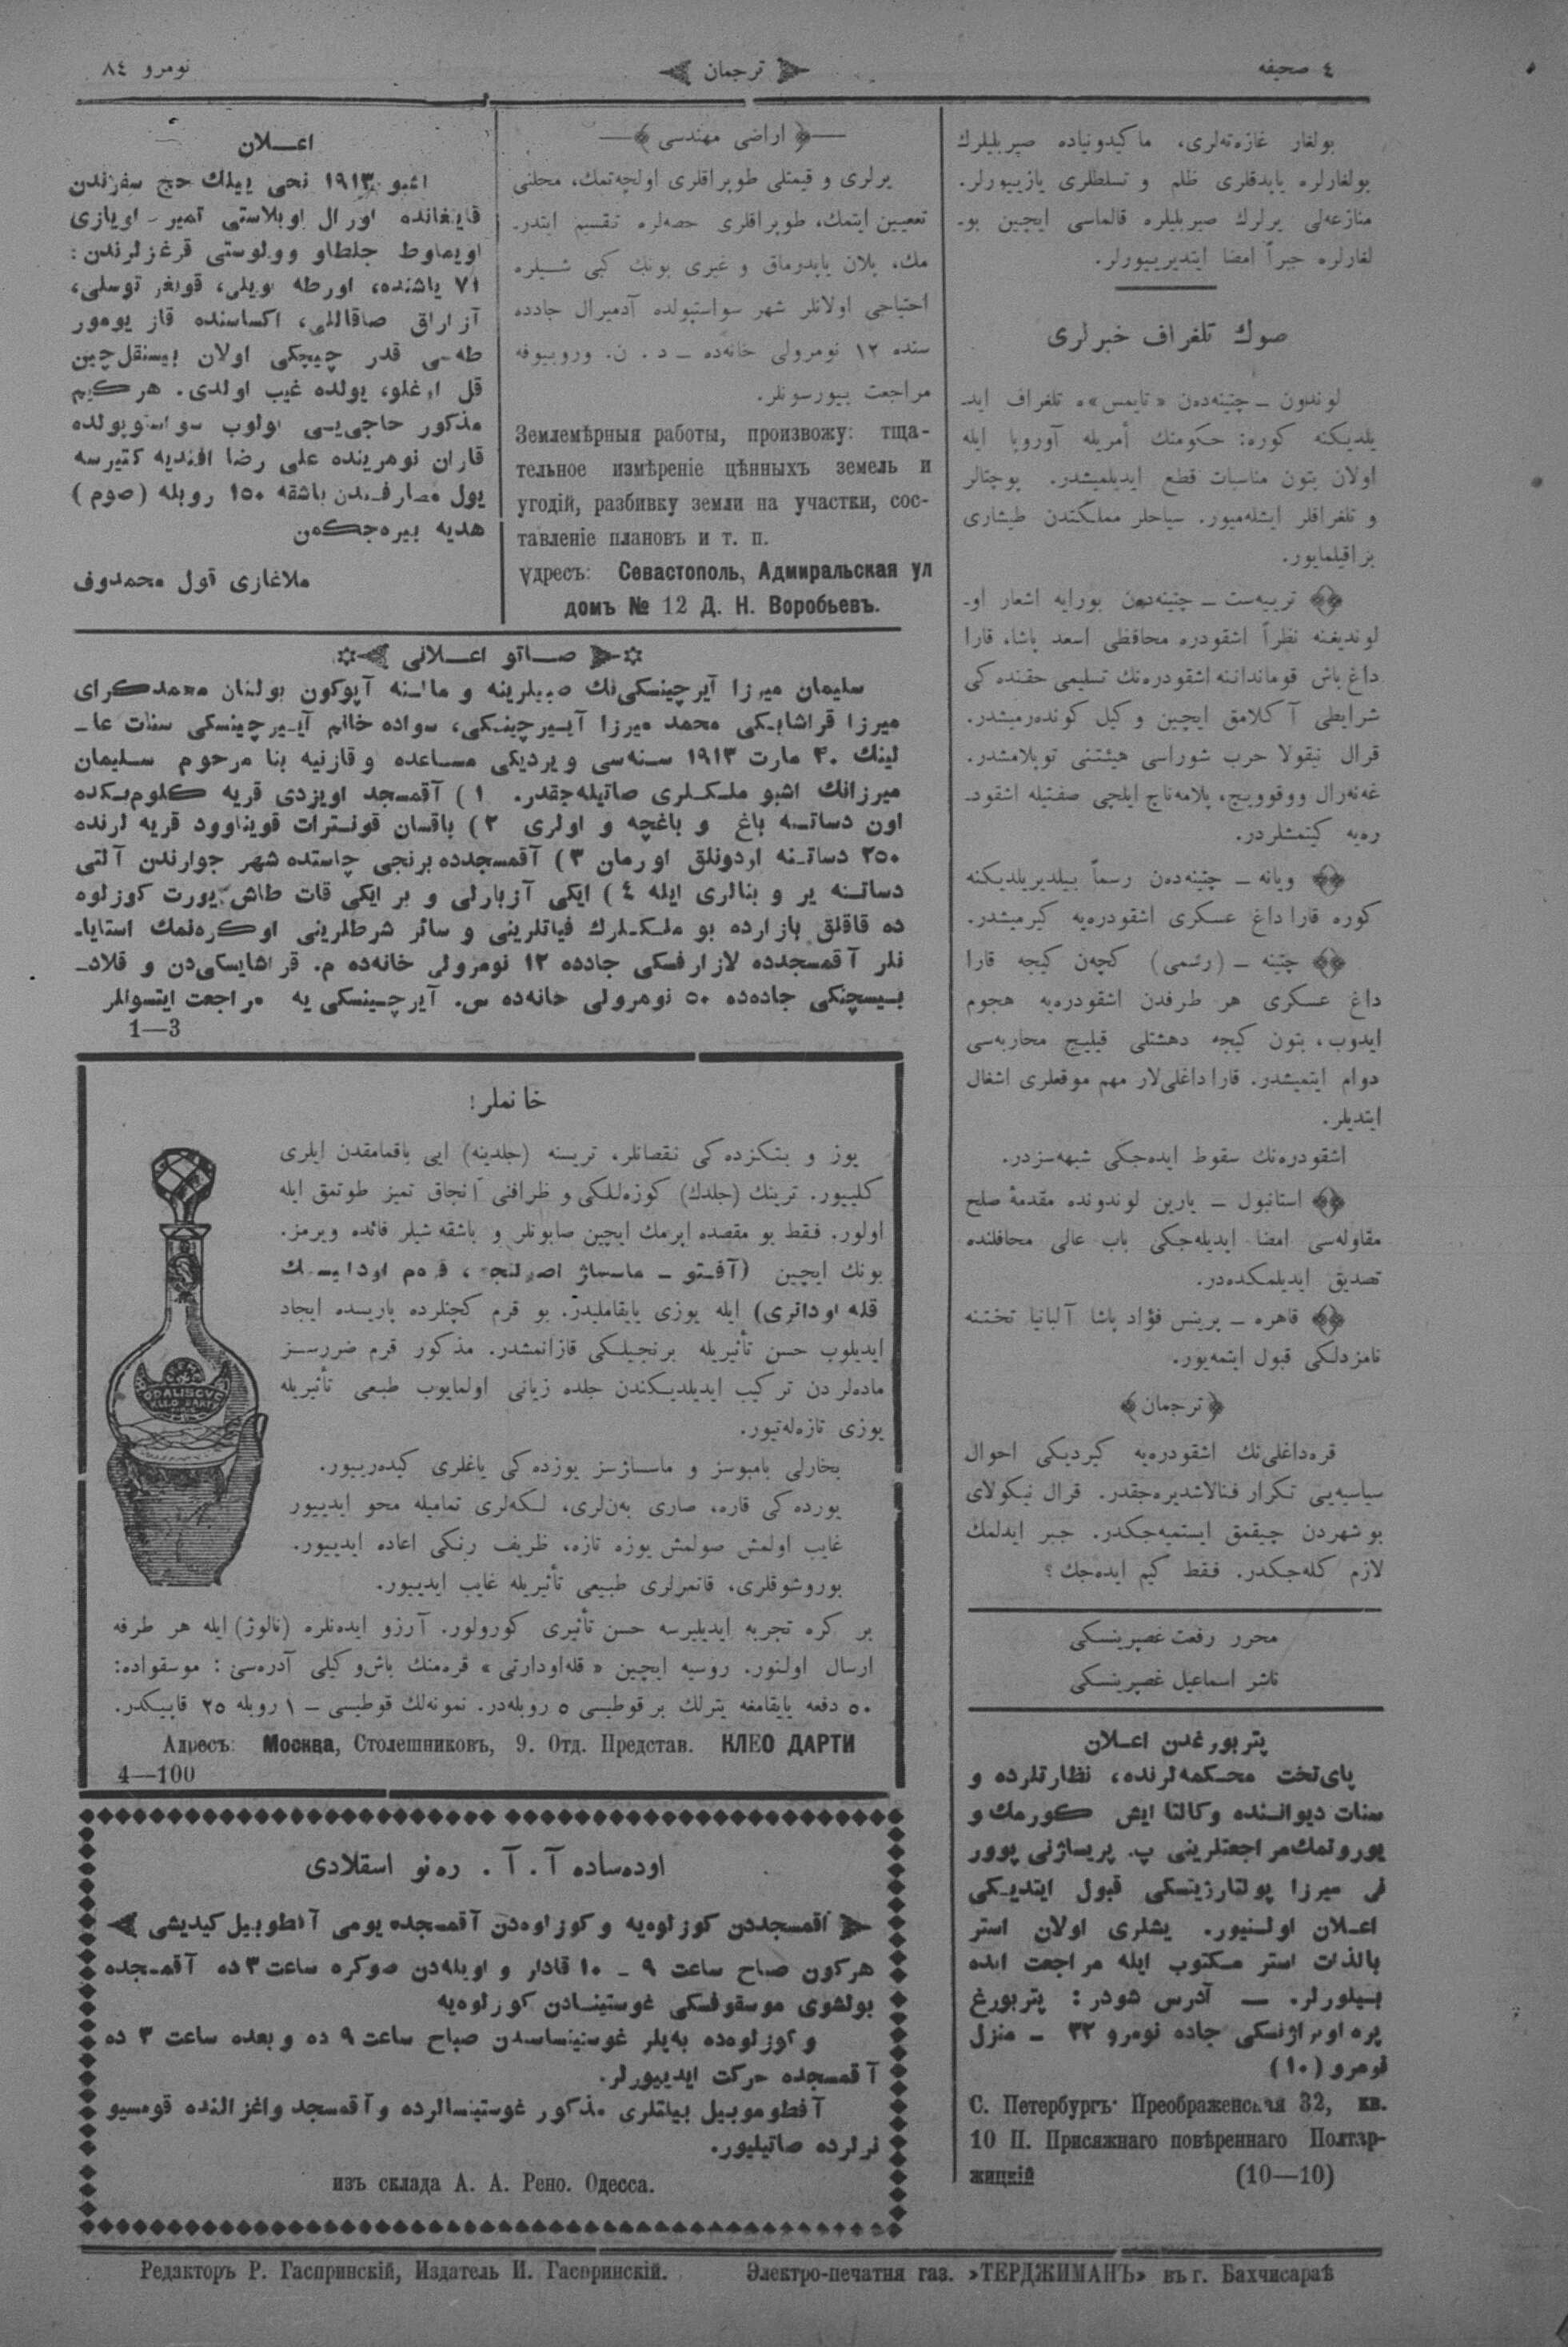 ٤ صحيفه
ترجمان
نومرو ٨٤
بولغار غازەتەلری، ماكيدونياده صربليلرك
بولغارلره ياپدقلری ظلم و تسلطلری يازييورلر.
منازعه‌لی يرلرك صربليلره قالماسی ايچين بو۔
لغارلره جبراً امضا ايتديرييورلر.
صوك تلغراف خبرلری
لوندون ــ چتينه‌دەن «تايمس»ه تلغراف ايد۔
يلديكنه كوره: حكومتك أمريله آوروپا ايله
اولان بتون مناسبات قطع ايديلميشدر. پوچتالر
و تلغرافلر ايشله‌ميور. سياحلر مملكتدن طيشاری
براقيلمايور.
تريیه‌ست ــ چتينه‌دەن بورايه اشعار او۔
لونديغنه نظراً اشقودره محافظی اسعد پاشا، قارا
داغ باش قومانداننه اشقودره‌نك تسليمی حقنده كی
شرايطی آكلامق ايچين وكيل كوندەرميشدر.
قرال نيقولا حرب شوراسی هيئتنی توپلامشدر.
غەنەرال ووقوويچ، پلامەناچ ايلچی صفتيله اشقود۔
رەيه كيتمشلردر.
ويانه ــ چتينه‌دەن رسماً بيلديريلديكنه
كوره قاراداغ عسكری اشقودرەيه كيرميشدر.
چتينه ــ (رسمی) كچەن كيجه قارا
داغ عسكری هر طرفدن اشقودرەيه هجوم
ايدوب، بتون كيجه دهشتلی قيليچ محاربەسی
دوام ايتميشدر. قاراداغلی‌لار مهم موقعلری اشغال
ايتديلر.
اشقودرەنك سقوط ايدەجكی شبهەسزدر.
استانبول ــ يارين لوندونده مقدمۀ صلح
مقاولەسی امضا ايديلەجكی باب عالی محافلنده
تصديق ايديلمكدەدر.
قاهره ــ پرينس فؤاد پاشا آلبانيا تختنه
نامزدلكی قبول ايتمەيور.
﴿ترجمان﴾
قرەداغلی‌نك اشقودرەيه كيرديكی احوال
سياسيەيی تكرار فنالاشديرەجقدر. قرال نيكولای
بو شهردن چيقمق ايستميەجكدر. جبر ايدلمك
لازم كلەجكدر. فقط كيم ايدەجك؟
محرر رفعت غصپرينسكی
ناشر اسماعيل غصپرينسكی
پتربورغدن اعلان
پای‌تخت محكمەلرنده، نظارتلرده و
سنات ديوانــنده وكالتا ايش كورمك و
يوروتمك مراجعتلرينی پ. پريساژنی پوور
نی ميرزا پولتارژيتسكی قبول ايتديكی
اعلان اولنيور. يشلری اولان استر
بالذات استر مكتوب ايله مراجعت ايده
بيلورلر. ــ آدرس شودر: پتربورغ
پره‌اوبراژنسكی جاده نومرو ٣٢ ــ منزل
نومرو (١٠)
С. Петербургъ· Преображенская 32, кв.
10 П. Присяжнаго повѣреннаго Полтар-
жицкій (10—10)
﴿اراضی مهندسی﴾
يرلری و قيمتلی طوپراقلری اولچەتمك، محلنی
تعيين ايتمك، طوپراقلری حصەلره تقسيم ايتدر۔
مك، پلان ياپدرماق و غيری بونك كبی شيلره
احتياجی اولانلر شهر سواستپولده آدميرال جادده
سنده ١٢ نومرولی خانەده ــ د . ن. وروبيوفه
مراجعت بيورسونلر.
Землемѣрныя работы, произвожу: тща-
тельное измѣреніе цѣнныхъ земель и
угодій, разбивку земли на участки, сос-
тавленіе плановъ и т. п.
удресъ: Севастополь, Адмиральская ул
домъ № 12 Д. Н. Воробьевъ.
اعــلان
اشبو ١٩١٣ نجی ييلك حج سفرندن
قايتغانده اورال اوبلاستی تمير ــ اويازی
اويماوط جلطاو وولوستی قرغزلرندن:
٧١ ياشنده، اورطه بويلی، قونغر توسلی،
آزاراق صاقاللی، اكساسنده قاز يومور
طه‌سی قدر چيچكی اولان بيسنقل‌چين
قل اوغلو، يولده غيب اولدی. هركيم
مذكور حاجی‌يی بولوب سواستوپولده
قازان نومرينده علی رضا افنديه كتيرسه
يول مصارفندن باشقه ١٥٠ روبله (صوم)
هديه بيرەجكەمن
ملاغازی قول محمدوف
صــاتو اعــلانی
سليمان ميرزا آيرچينسكی‌نك صبيلرينه و مالــنه آپوكون بولنان محمدكرای
ميرزا قراشايسكی محمد ميرزا آيــرچينسكی، سواده خانم آيــرچينسكی سنات عا۔
لينك ٣٠ مارت ١٩١٣ سنەسی ويرديكی مساعده و قازنيه بنا مرحوم سليمان
ميرزانك اشبو ملكلری صاتيلەجقدر. ١) آقمسجد اويزدی قريه كلوم‌بكده
اون دساتنه باغ و باغچه و اولری ٢) باقسان قونترات قوبناوود قريه لرنده
٢٥٠ دساتنه اردونلق اورمان ٣) آقمسجدده برنجی چاستده شهر جوارندن آلتی
دساتنه ير و بنالری ايله ٤) ايكی آزبارلی و بر ايكی قات طاش يورت كوزلوه
ده قاقلق پازارده بو ملكلرك فياتلرينی و سائر شرطلرينی اوكرەنمك استايا۔
نلر آقمسجدده لازارفسكی جادده ١٢ نومرولی خانەده م. قراشايسكی‌دن و قلاد۔
بيسچنكی جادەده ٥٠ نومرولی خانەده س. آيرچينسكی يه مراجعت ايتسونلر
1—3
خانملر!
يوز و بتكزده‌كی نقصانلر، تريسنه (جلدينه) ايی باقمامقدن ايلری
كلييور. ترينك (جلدك) كوزەللكی و ظرافنی آنجاق تميز طوتمق ايله
اولور. فقط بو مقصده ايرمك ايچين صابونلر و باشقه شيلر فائده ويرمز.
بونك ايچين
قله اودارتی) ايله يوزی يايقامليدر. بو قرم كچنلرده پاريسده ايجاد
ايديلوب حسن تأثيريله برنجيلكی قازانمشدر. مذكور قرم ضررسز
مادەلردن تركيب ايديلديكندن جلده زيانی اولمايوب طبعی تأثيريله
يوزی تازەلەتيور.
بخارلی بامبوسز و ماساژسز يوزده‌كی ياغلری كيدەرييور.
يورده‌كی قاره، صاری بەن‌لری، لكەلری تماميله محو ايدييور
غايب اولمش صولمش يوزه تازه، ظريف رنكی اعاده ايدييور.
بوروشوقلری، قاتمرلری طبيعی تأثيريله غايب ايدييور.
بر كره تجربه ايديليرسه حسن تأثيری كورولور. آرزو ايدەنلره (نالوژ) ايله هر طرفه
ارسال اولنور. روسيه ايچين «قلەاودارتی» قرەمنك باش‌وكيلی آدرەسی: موسقواده:
٥٠ دفعه يايقامغه يترلك بر قوطيسی ٥ روبلەدر. نمونەلك قوطيسی ــ ١ روبله ٢٥ قاپيكدر.
Адресъ: Москва, Столешниковъ, 9. Отд. Представ. КЛЕО ДАРТИ
4—100
ODALISCVE
CLEO DARTY
اودەساده آ. آ. رەنو اسقلادی
آقمسجددن كوزلوەيه و كوزلوەدن آقمسجده يومی آفطوبيل كيديشی
هركون صباح ساعت ٩ ــ ١٠ قادار و اويلەدن صوكره ساعت ٣ ده آقمسجده
بولشوی موسقوفسكی غوستينــادن كوزلوەيه
و كوزلوەده بەيلر غوستينساسدن صباح ساعت ٩ ده و بعده ساعت ٣ ده
آقمسجده حركت ايدييورلر.
آفطوموبيل بيلتلری مذكور غوستينسالرده و آقمسجد واغزالنده قومسيو
نرلرده صاتيليور.
изъ склада А. А. Рено. Одесса.
Редакторъ Р. Гаспринскій, Издатель И. Гаспринскій. Электро-печатня газ. »ТЕРДЖИМАНЪ» въ г. Бахчисараѣ